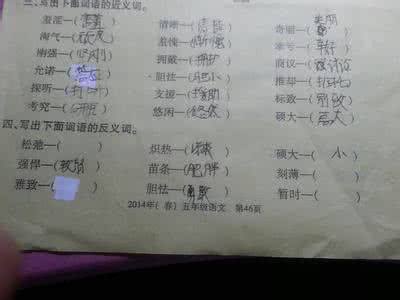 三、写出下面词语的近义词。
羞涩—( ) 清晰—(清楚) 奇丽—(美丽)
淘气—(顽皮) 羞愧—(惭愧) 幸亏—( )
刚强—(坚刚) 拥戴—(拥护) 商议—( 讨论)
允诺—(答应) 胆怯—(胆小) 推却—( )
探听—(打听) 支援—(援助) 标致—( )
考究—(讲究) 悠闲—(悠然) 硕大—(高大)
四、写出下面词语的反义词。
松弛—( ) 炽热—( ) 硕大—( 小 )
强悍—(软弱) 苗条—(肥胖) 刻薄—( )
雅致—( ) 胆怯—(勇敢) 暂时—( )
2014年(春)五年级语文 第46页